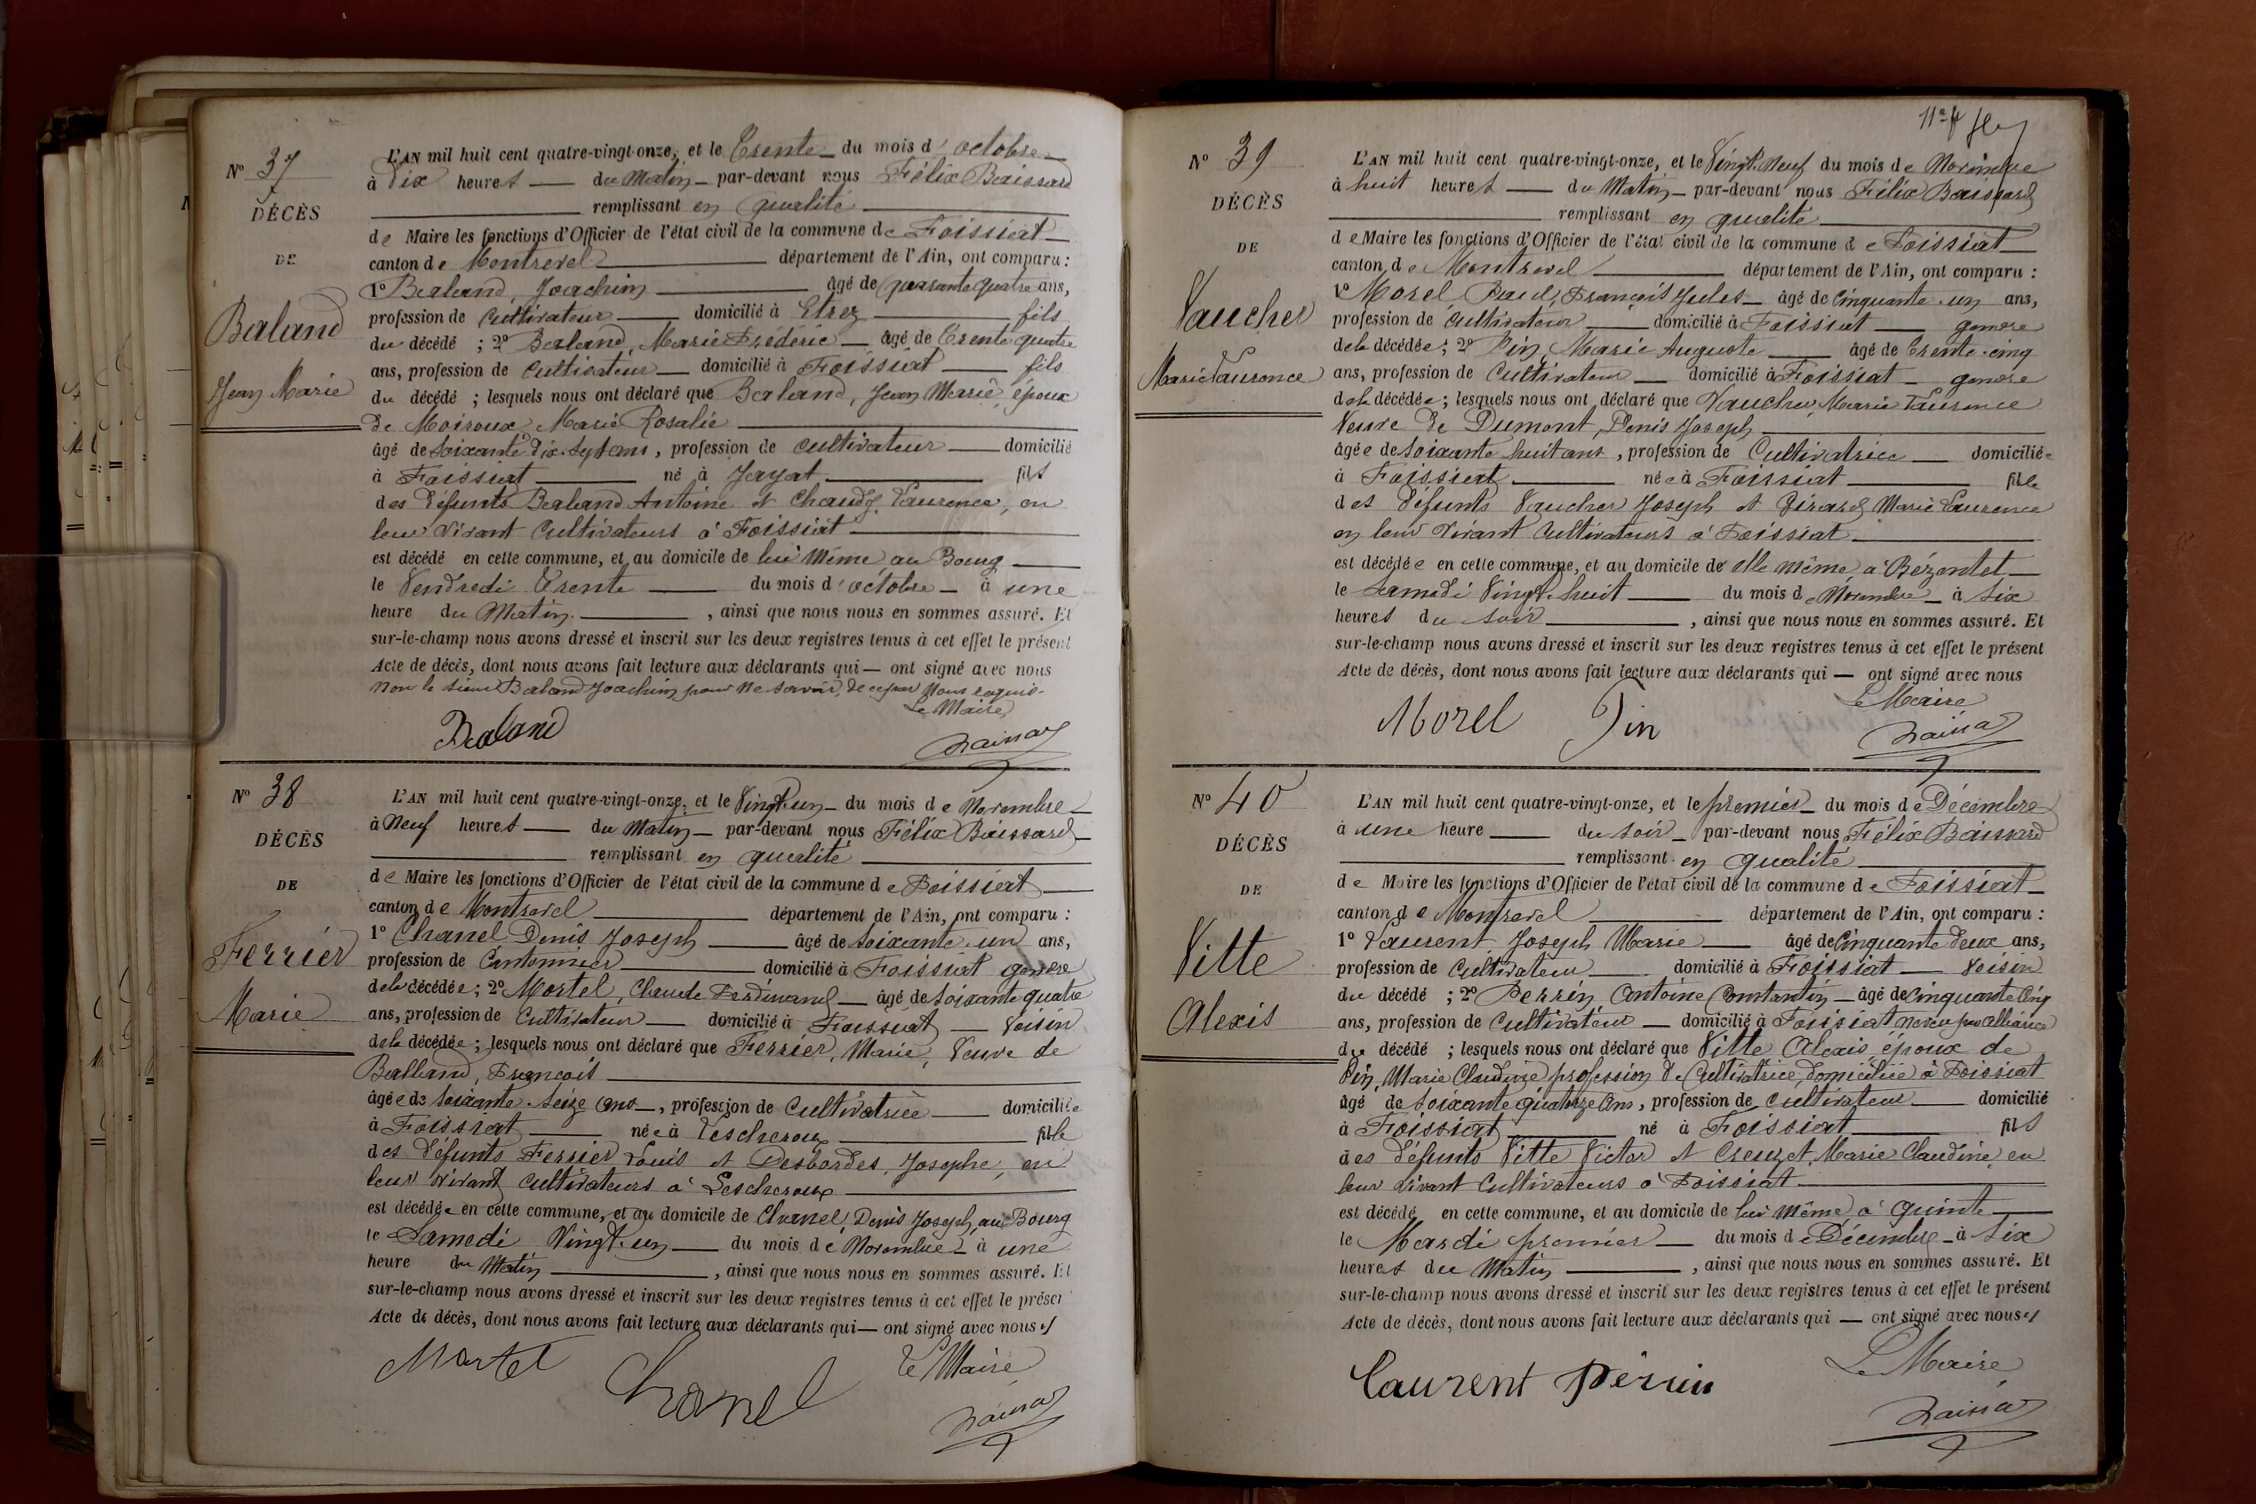 Nº 37
DÉCÈS
DE
Baland
Jean Marie
L'AN mil huit cent quatre-vingt-onze, et le Trente du mois d'octobre
à dix heures du Matin par-devant nous Félix Baissard
remplissant en qualité
de Maire les fonctions d'Officier de l'état civil de la commune de Foissiat
canton de Montrevel département de l'Ain, ont comparu :
1º Baland, Joachim âgé de quarante quatre ans,
profession de Cultivateur domicilié à Etrez fils
du décédé ; 2º Baland, Marie Frédéric âgé de Trente quatre
ans, profession de Cultivateur domicilié à Foissiat fils
du décédé ; lesquels nous ont déclaré que Baland, Jean Marie époux
de Moiroux Marie Rosalie
âgé de soixante dix-sept ans, profession de cultivateur domicilié
à Foissiat né à Jayat fils
des défunts Baland Antoine et Chaudy Laurence, en
leur vivant Cultivateurs à Foissiat
est décédé en cette commune, et au domicile de lui même au Bourg
le Vendredi Trente du mois d'octobre à une
heure du Matin, ainsi que nous nous en sommes assuré. Et
sur-le-champ nous avons dressé et inscrit sur les deux registres tenus à cet effet le présent
Acte de décès, dont nous avons fait lecture aux déclarants qui — ont signé avec nous
non le sieur Baland Joachim pour ne savoir, de ce par Nous requis.
Le Maire
Baland
Baissard
Nº 38
DÉCÈS
DE
Ferrier
Marie
L'AN mil huit cent quatre-vingt-onze, et le Vingt-un du mois de Novembre
à Neuf heures du Matin par-devant nous Félix Baissard
remplissant en qualité
de Maire les fonctions d'Officier de l'état civil de la commune de Foissiat
canton de Montrevel département de l'Ain, ont comparu :
1º Chanel Denis Joseph âgé de soixante-un ans,
profession de Cantonnier domicilié à Foissiat gendre
de la décédée ; 2º Martel, Claude Ferdinand âgé de soixante quatre
ans, profession de Cultivateur domicilié à Foissiat Voisin
de la décédée ; lesquels nous ont déclaré que Ferrier, Marie, Veuve de
Balland, François
âgée de soixante-seize ans, profession de Cultivatrice domiciliée
à Foissiat née à Lescheroux fille
des défunts Ferrier Louis et Desbordes, Josephe, en
leur vivant cultivateurs à Lescheroux
est décédée en cette commune, et au domicile de Chanel, Denis Joseph, au Bourg
le Samedi Vingt-un du mois de Novembre à une
heure du Matin, ainsi que nous nous en sommes assuré. Et
sur-le-champ nous avons dressé et inscrit sur les deux registres tenus à cet effet le présent
Acte de décès, dont nous avons fait lecture aux déclarants qui — ont signé avec nous
Le Maire
Martel
Chanel
Baissard
Nº 39
DÉCÈS
DE
Vaucher
Marie Laurence
L'AN mil huit cent quatre-vingt-onze, et le Vingt-Neuf du mois de Novembre
à huit heures du Matin par-devant nous Félix Baissard
remplissant en qualité
de Maire les fonctions d'Officier de l'état civil de la commune de Foissiat
canton de Montrevel département de l'Ain, ont comparu :
1º Morel Paul, François Jules âgé de Cinquante-un ans,
profession de Cultivateur domicilié à Foissiat gendre
de la décédée ; 2º Pin, Marie Auguste âgé de Trente-cinq
ans, profession de Cultivateur domicilié à Foissiat gendre
de la décédée ; lesquels nous ont déclaré que Vaucher, Marie Laurence
Veuve de Dumont, Denis Joseph
âgée de soixante huit ans, profession de Cultivatrice domiciliée
à Foissiat née à Foissiat fille
des défunts Vaucher Joseph et Marie Laurence
en leur vivant Cultivateurs à Foissiat
est décédée en cette commune, et au domicile de elle même, à Bézentet
le Samedi Vingt-huit du mois de Novembre à six
heures du soir, ainsi que nous nous en sommes assuré. Et
sur-le-champ nous avons dressé et inscrit sur les deux registres tenus à cet effet le présent
Acte de décès, dont nous avons fait lecture aux déclarants qui — ont signé avec nous
Le Maire
Morel Pin
Baissard
Nº 40
DÉCÈS
DE
Vitte
Alexis
L'AN mil huit cent quatre-vingt-onze, et le premier du mois de Décembre
à une heure du soir par-devant nous Félix Baissard
remplissant en qualité
de Maire les fonctions d'Officier de l'état civil de la commune de Foissiat
canton de Montrevel département de l'Ain, ont comparu :
1º Laurent, Joseph Marie âgé de Cinquante deux ans,
profession de Cultivateur domicilié à Foissiat Voisin
du décédé ; 2º Perrin Antoine Constantin âgé de Cinquante Cinq
ans, profession de Cultivateur domicilié à Foissiat neveu par alliance
du décédé ; lesquels nous ont déclaré que Vitte Alexis époux de
Pin, Marie Claudine profession de Cultivatrice, domiciliée à Foissiat
âgé de soixante quatorze ans, profession de Cultivateur domicilié
à Foissiat né à Foissiat fils
des défunts Vitte Victor et Creuzet, Marie Claudine en
leur vivant Cultivateurs à Foissiat
est décédé en cette commune, et au domicile de lui même à Quinte
le Mardi premier du mois de Décembre à six
heures du Matin, ainsi que nous nous en sommes assuré. Et
sur-le-champ nous avons dressé et inscrit sur les deux registres tenus à cet effet le présent
Acte de décès, dont nous avons fait lecture aux déclarants qui — ont signé avec nous
Le Maire
Laurent Perrin
Baissard